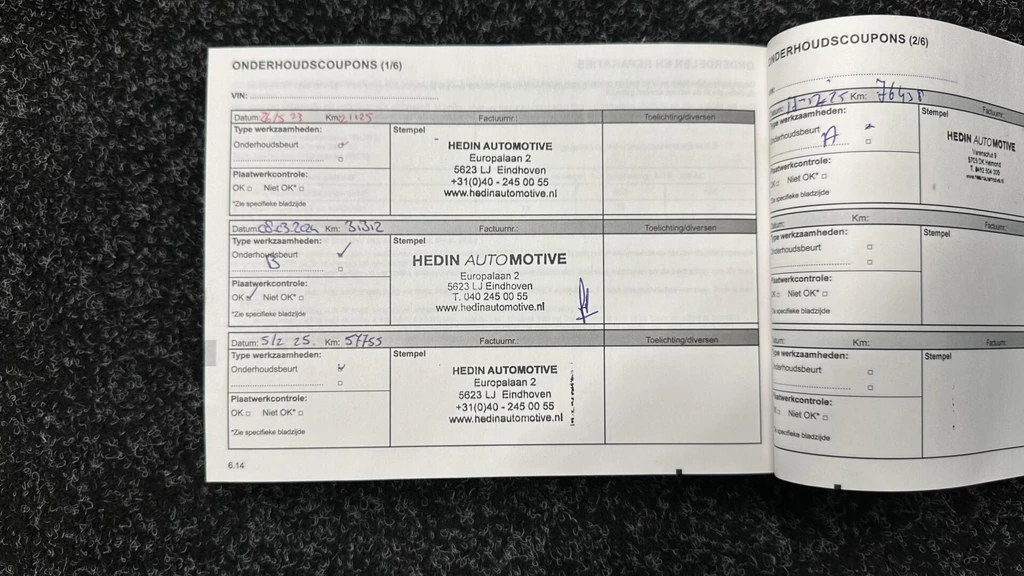 ONDERHOUDSCOUPONS (1/6)
VIN:
Datum: Km: 21125 Factuurnr.: Toelichting/diversen
Type werkzaamheden: Stempel
Onderhoudsbeurt
HEDIN AUTOMOTIVE
Europalaan 2
5623 LJ Eindhoven
+31(0)40 - 245 00 55
www.hedinautomotive.nl
Plaatwerkcontrole:
OK Niet OK*
*Zie specifieke bladzijde
Datum: 08.03.2024 Km: 31312 Factuurnr.: Toelichting/diversen
Type werkzaamheden: Stempel
Onderhoudsbeurt
B
HEDIN AUTOMOTIVE
Europalaan 2
5623 LJ Eindhoven
T. 040 245 00 55
www.hedinautomotive.nl
Plaatwerkcontrole:
OK Niet OK*
*Zie specifieke bladzijde
Datum: 5/2 25. Km: 57755 Factuurnr.: Toelichting/diversen
Type werkzaamheden: Stempel
Onderhoudsbeurt
HEDIN AUTOMOTIVE
Europalaan 2
5623 LJ Eindhoven
+31(0)40 - 245 00 55
www.hedinautomotive.nl
Plaatwerkcontrole:
OK Niet OK*
*Zie specifieke bladzijde
6.14
ONDERHOUDSCOUPONS (2/6)
Km: 76438 Factuurnr
Type werkzaamheden: Stempel
Onderhoudsbeurt A
HEDIN AUTOMOTIVE
5705 DK Helmond
T. 0492 504 000
www.hedinautomotive.nl
Plaatwerkcontrole:
OK Niet OK*
*Zie specifieke bladzijde
Km: Factuurn
Type werkzaamheden: Stempel
Onderhoudsbeurt
Plaatwerkcontrole:
Niet OK*
*Zie specifieke bladzijde
Km: Factuurn
Type werkzaamheden: Stempel
Onderhoudsbeurt
Plaatwerkcontrole:
OK Niet OK*
*Zie specifieke bladzijde